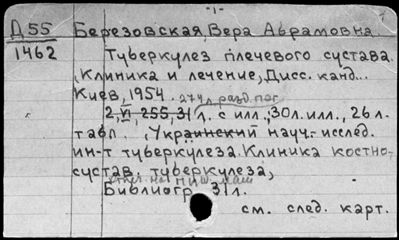 -1-
Д 55 Березовская, Вера Абрамовна
1462 Туберкулез плечевого сустава.
Клиника и лечение, Дисс. канд...
Киев, 1954. 274 л. разд. паг.
2, VI, 255, 31 л. с илл., 30 л. илл., 26 л.
табл. Украинский науч.-исслед.
ин-т туберкулеза. Клиника костно-
сустав. туберкулеза,
Отпеч. на пиш. маш.
Библиогр. 31 л.
см. след. карт.